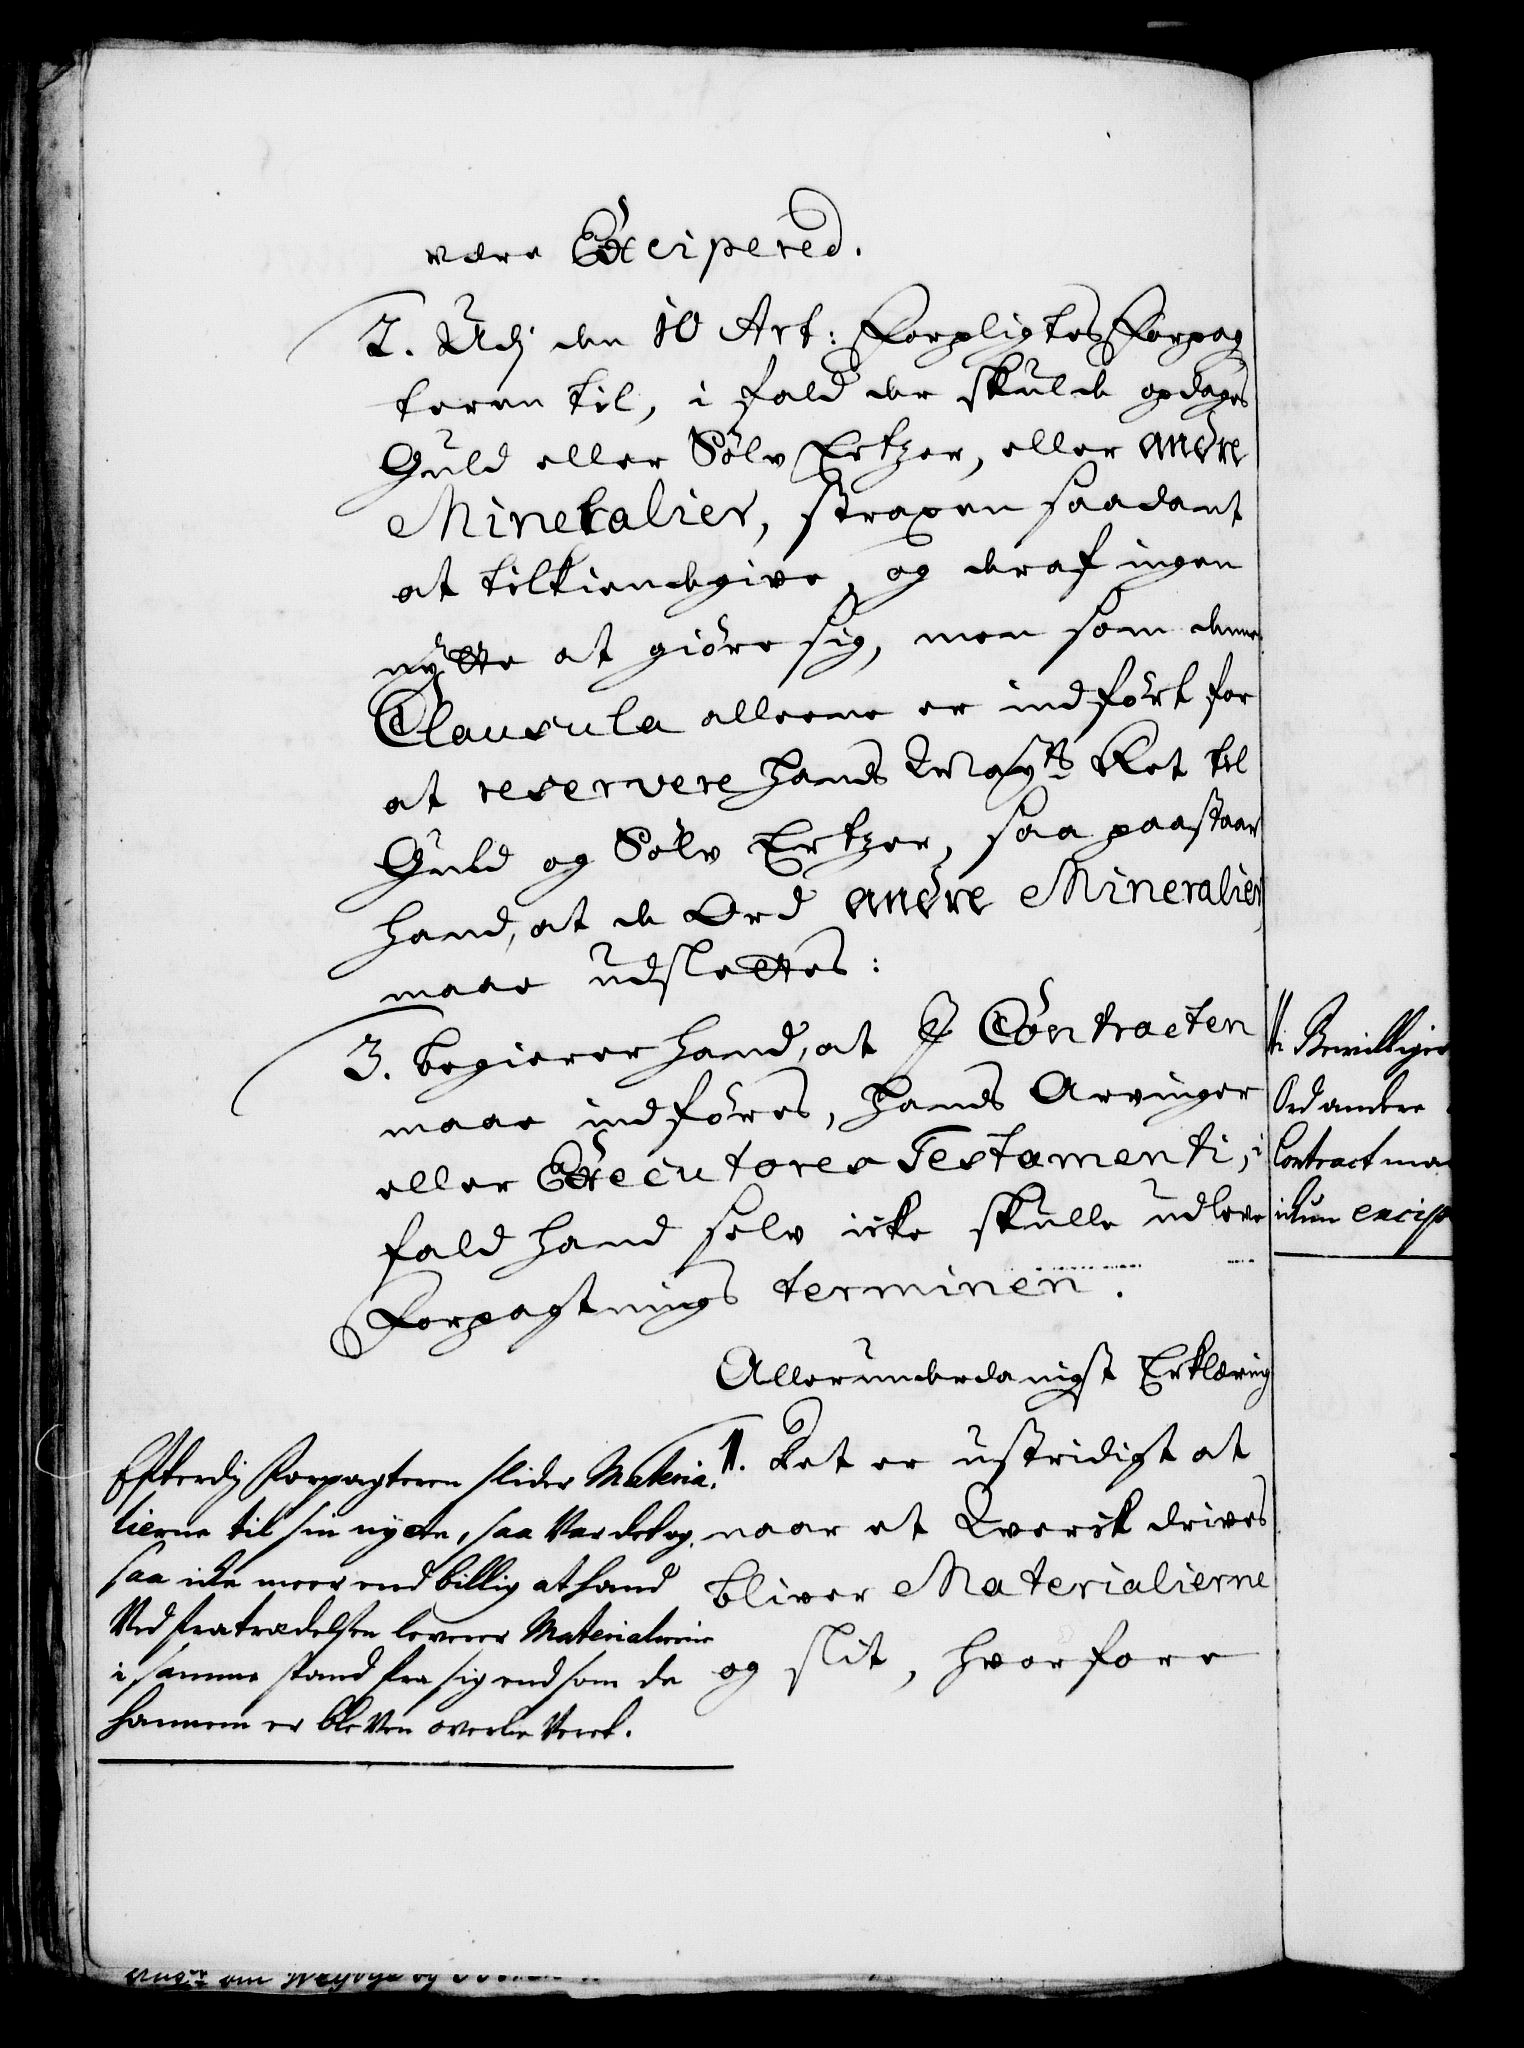 være Excipered.
2. Udj den 10 Art: Forpligtes Forpag
teren til, i fald der skulde opdages
Guld eller Sølv Ertzer, eller andre
Mineralier, straxen saadant
at tilkiendegive, og deraf ingen
nytte at giøre sig, men som denne
Clausula alleene er indført for
at reservere Hands Mayts Ret til
Guld og Sølv Ertzer, saa paastaar
hand, at de Ord andre Mineralier
maae udslettes:
3. begierer hand, at I Contracten
maae indføres, Hands Arvinger
eller Executores Testamenti, i
fald hand selv icke skulle udleve
Forpagtnings terminen.
Allerunderdanigst Erklæring
1. Det er ustridigt at
naar et Kverck drives
bliver Materialierne
og slit, hvorfore
Efterdj Forpagteren slider Materia-
lierne til sin nytte, saa Var det og
saa icke meer end billig at hand
Ved fratrædelsen leverer Materialierne
i samme stand fra sig end som de
hannem er bleVen overleVeret.
Vi Bevillige
Ord andre
Contract maa
icken excip